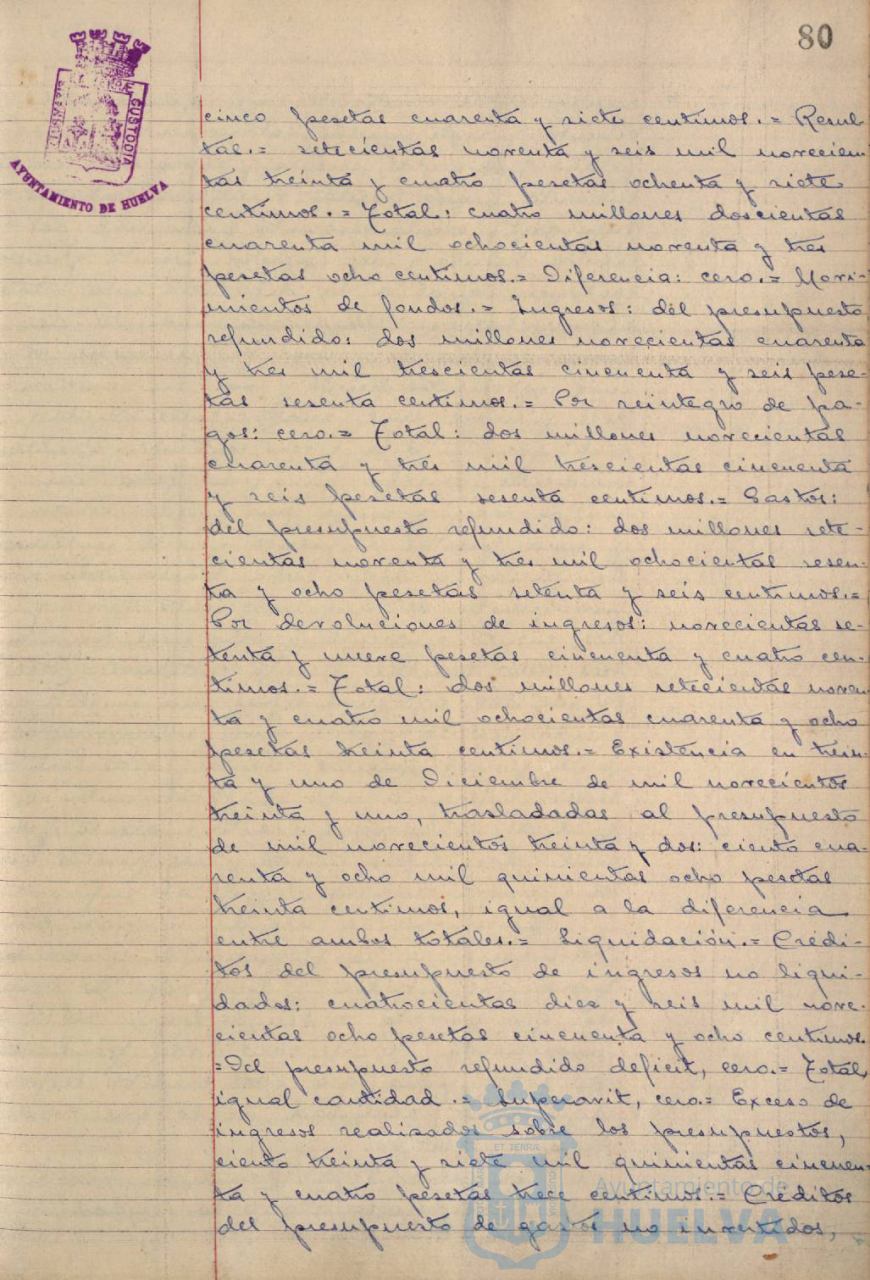 80
AYUNTAMIENTO DE HUELVA
CUSTODIA
cinco pesetas cuarenta y siete centimos.= Resul-
tas.= setecientas noventa y seis mil novecien-
tas treinta y cuatro pesetas ochenta y siete
centimos.= Total: cuatro millones doscientas
cuarenta mil ochocientas noventa y tres
pesetas ocho centimos.= Diferencia: cero.= Movi-
mientos de fondos.= Ingresos: del presupuesto
refundido: dos millones novecientas cuarenta
y tres mil trescientas cincuenta y seis pese-
tas sesenta centimos.= Por reintegro de pa-
gos: cero.= Total: dos millones novecientas
cuarenta y tres mil trescientas cincuenta
y seis pesetas sesenta centimos.= Gastos:
del presupuesto refundido: dos millones sete-
cientas noventa y tres mil ochocientas sesen-
ta y ocho pesetas setenta y seis centimos.=
Por devoluciones de ingresos: novecientas se-
tenta y nueve pesetas cincuenta y cuatro cen-
timos.= Total: dos millones setecientas noven-
ta y cuatro mil ochocientas cuarenta y ocho
pesetas treinta centimos.= Existencia en trein-
ta y uno de Diciembre de mil novecientos
treinta y uno, trasladadas al presupuesto
de mil novecientos treinta y dos: ciento cua-
renta y ocho mil quinientas ocho pesetas
treinta centimos, igual a la diferencia
entre ambos totales.= Liquidación.= Crédi-
tos del presupuesto de ingresos no liqui-
dados: cuatrocientas diez y seis mil nove-
cientas ocho pesetas cincuenta y ocho centimos.
=Del presupuesto refundido deficit, cero.= Total,
igual cantidad.= Superavit, cero.= Exceso de
ingresos realizados sobre los presupuestos,
ciento treinta y siete mil quinientas cincuen-
ta y cuatro pesetas trece centimos.= Créditos
del presupuesto de gastos no invertidos,
Ayuntamiento de
HUELVA